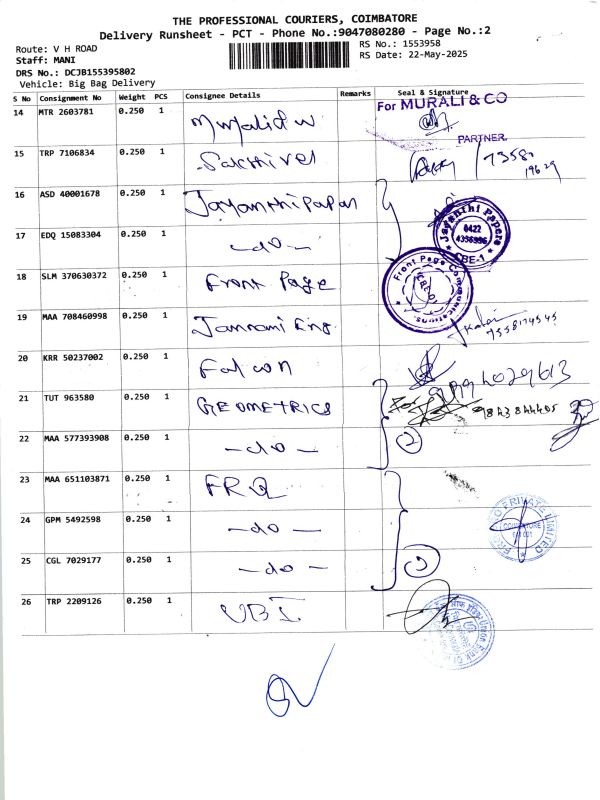 THE PROFESSIONAL COURIERS, COIMBATORE
Delivery Runsheet - PCT - Phone No.:9047080280 - Page No.:2
Route: V H ROAD
Staff: MANI
DRS No.: DCJB155395802
Vehicle: Big Bag Delivery
RS No.: 1553958
RS Date: 22-May-2025
S No Consignment No Weight PCS Consignee Details Remarks Seal & Signature
14 MTR 2603781 0.250 1 For MURALI & CO
PARTNER.
15 TRP 7106834 0.250 1 Sakthivel
16 ASD 40001678 0.250 1 Jayanthi Papar
Jayanthi Papers
0422
CBE-1
17 EDQ 15083304 0.250 1 -do-
18 SLM 370630372 0.250 1 Front Page
Front Page Communications
19 MAA 708460998 0.250 1
20 KRR 50237002 0.250 1 Falcon
21 TUT 963580 0.250 1 GEOMETRICS 9843844405
22 MAA 577393908 0.250 1 -do- 2
23 MAA 651103871 0.250 1
24 GPM 5492598 0.250 1 -do-
PRIVATE LIMITED
COIMBATORE
25 CGL 7029177 0.250 1 -do- 3
26 TRP 2209126 0.250 1 UBI